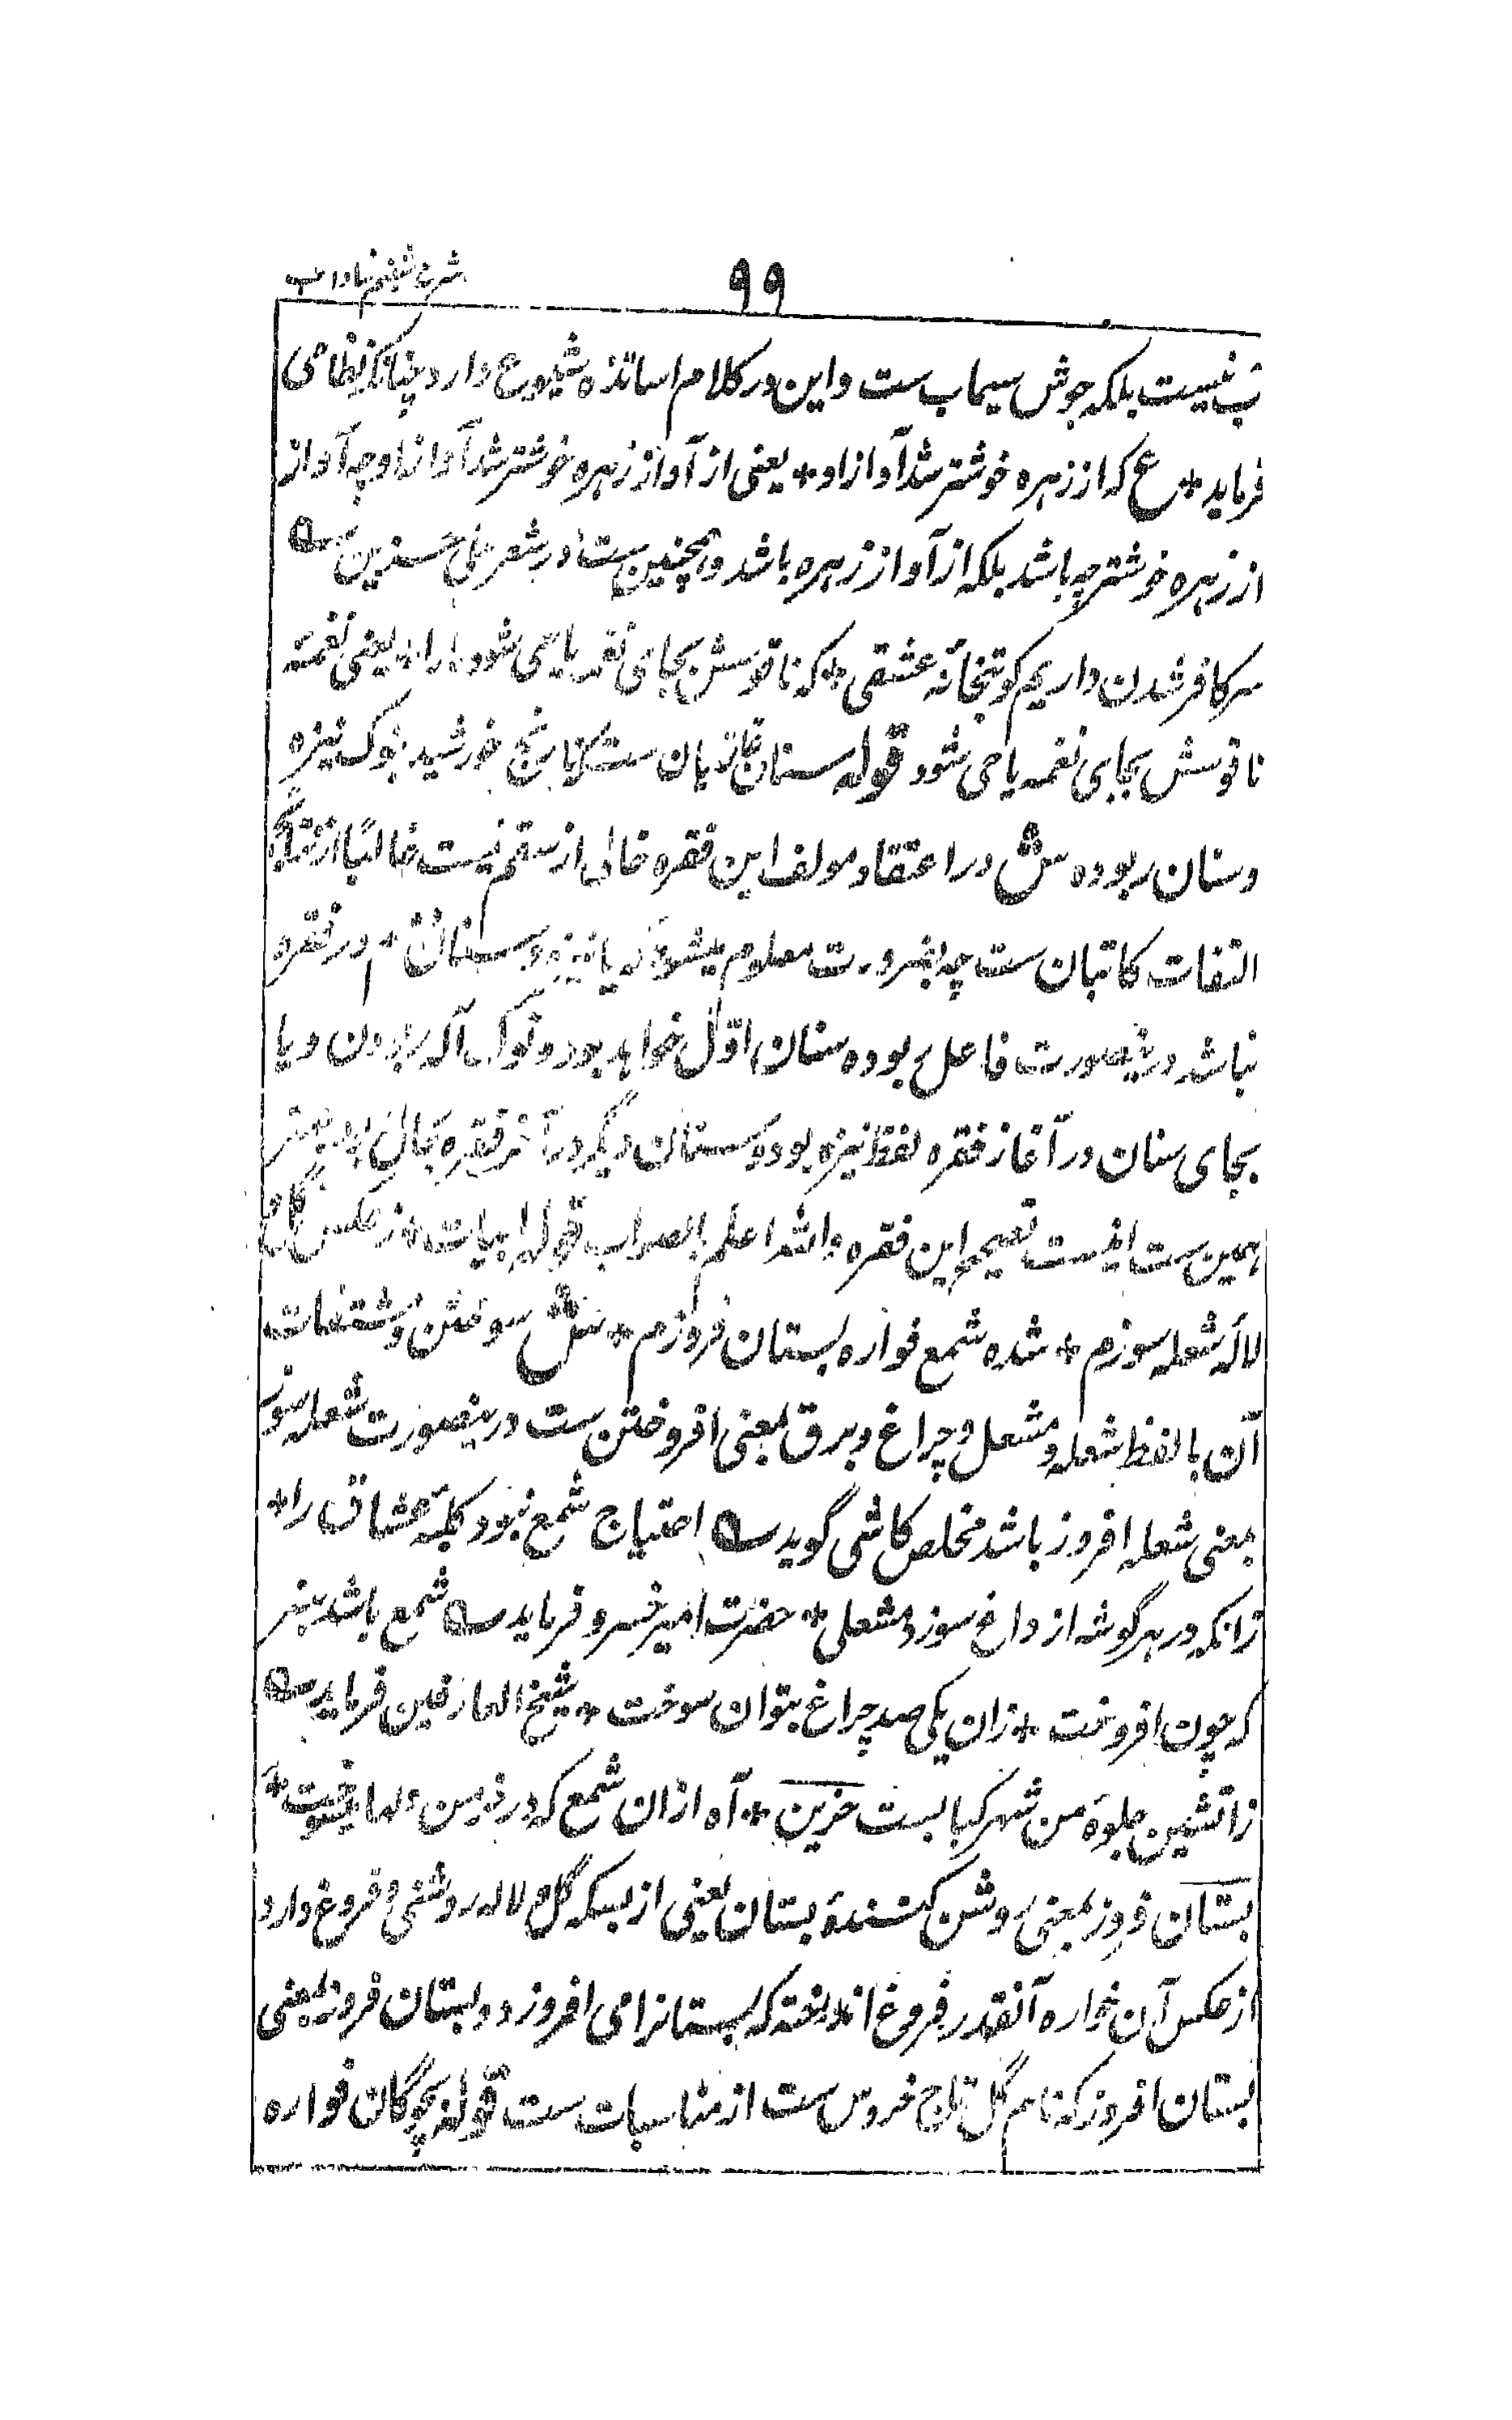 ۹۹
شرح شبنم شاداب
نیست بلکه جوش سیماب ست و این در کلام اساتذه شیوع دارد چنانکه نظامی
فرماید * ع که از زهره خوشتر شد آواز او * یعنی از آواز زهره خوشتر شد آواز او چه آواز
از زهره خوشتر چه باشد بلکه از آواز زهره باشد و همچنین ست در شعر علی حزین
سر کافر شدن داریم کو بتخانه عشقی * که ناقوسش بجای نغمه یاحی شود ما را * یعنی نغمه
ناقوسش بجای نغمه یاحی شود قوله سنان خورشید بنوک نیزه
و سنان ربوده ش در اعتقاد مولف این فقره خالی از سقم نیست غالباً از
التفات کاتبان ست چه بضرورت معلوم میشود که یا نیزه و سنان در فقره
نباشد درینصورت فاعل ربوده سنان اوّل خواهد بود و نوک آله ربودن و یا
بجای سنان در آغاز فقره لفظ نیزه بوده سنان دیگر در آخر فقره بحال بهتر
همین ست اینست تصحیح این فقره والله اعلم بالصواب قوله ابیات * ز عکس گل و
لاله شعله سوزم * شده شمع فواره بستان فروزم * ش سوختن و مشتقات
آن با لفظ شعله و مشعل و چراغ و برق بمعنی افروختن ست درینصورت شعله سوز
بمعنی شعله افروز باشد مخلص کاشی گوید احتیاج شمع نبود کلبه عشاق را *
زانکه در هر گوشه از داغ سوزد مشعلی * حضرت امیر خسرو فرماید شمع باشد هنر
که چون افروخت * زان یکی صد چراغ بتوان سوخت * شیخ العارفین فرماید
زاتشین جلوهٔ من شهر کبابست حزین * آه ازان شمع که در خرمن دلها میسوخت *
بستان فروز بمعنی روشن کنندهٔ بستان یعنی از بسکه گل و لاله روشنی و فروغ دارد
از عکس آن فواره آنقدر فروغ اندوخته که بستانرا می افروزد و بستان فروز بمعنی
بستان افروز که نام گل تاج خروس ست از مناسبات ست قوله بچوگان فواره